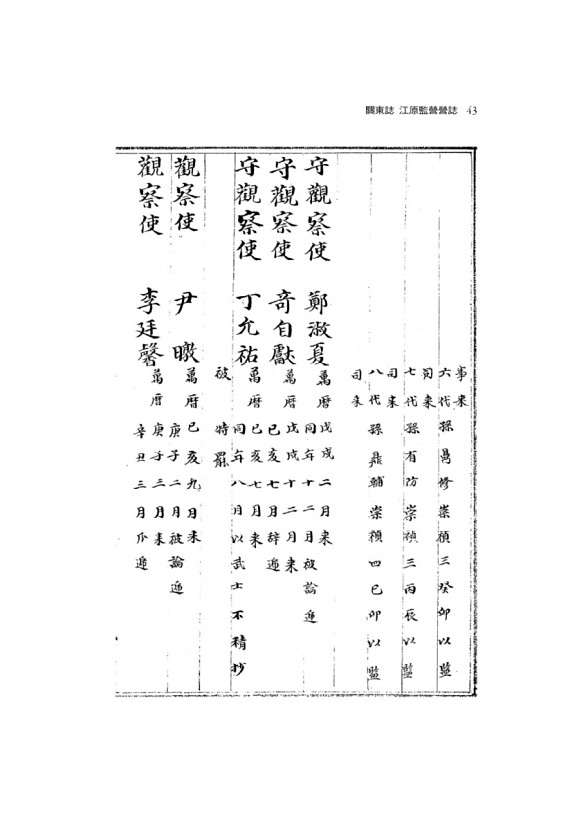 關東誌 江原監營營誌 43
事来
六代孫昌修崇禎三癸卯以監
司来
七代孫有防崇禎三丙辰以監
司来
八代孫鼎輔崇禎四己卯以監
司来
守觀察使 鄭淑夏 萬曆戊戌二月来
同年十二月被論遞
守觀察使 奇自獻 萬曆戊戌十二月来
己亥七月辞遞
守觀察使 丁允祐 萬曆己亥七月来
同年八月以武士不精抄
被特罷
觀察使 尹暾 萬曆己亥九月来
庚子二月被論遞
觀察使 李廷馨 萬曆庚子三月来
辛丑三月瓜遞